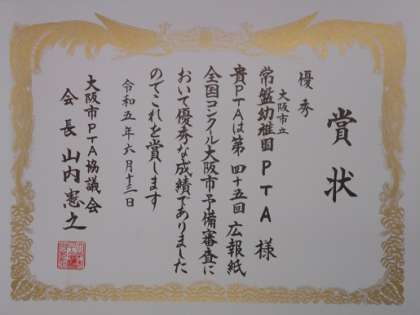 賞状
優秀
大阪市立
常盤幼稚園PTA様
貴PTAは第四十五回広報紙
全国コンクール大阪市予備審査に
おいて優秀な成績でありました
のでこれを賞します
令和五年六月十三日
大阪市PTA協議会
会長 山内憲之